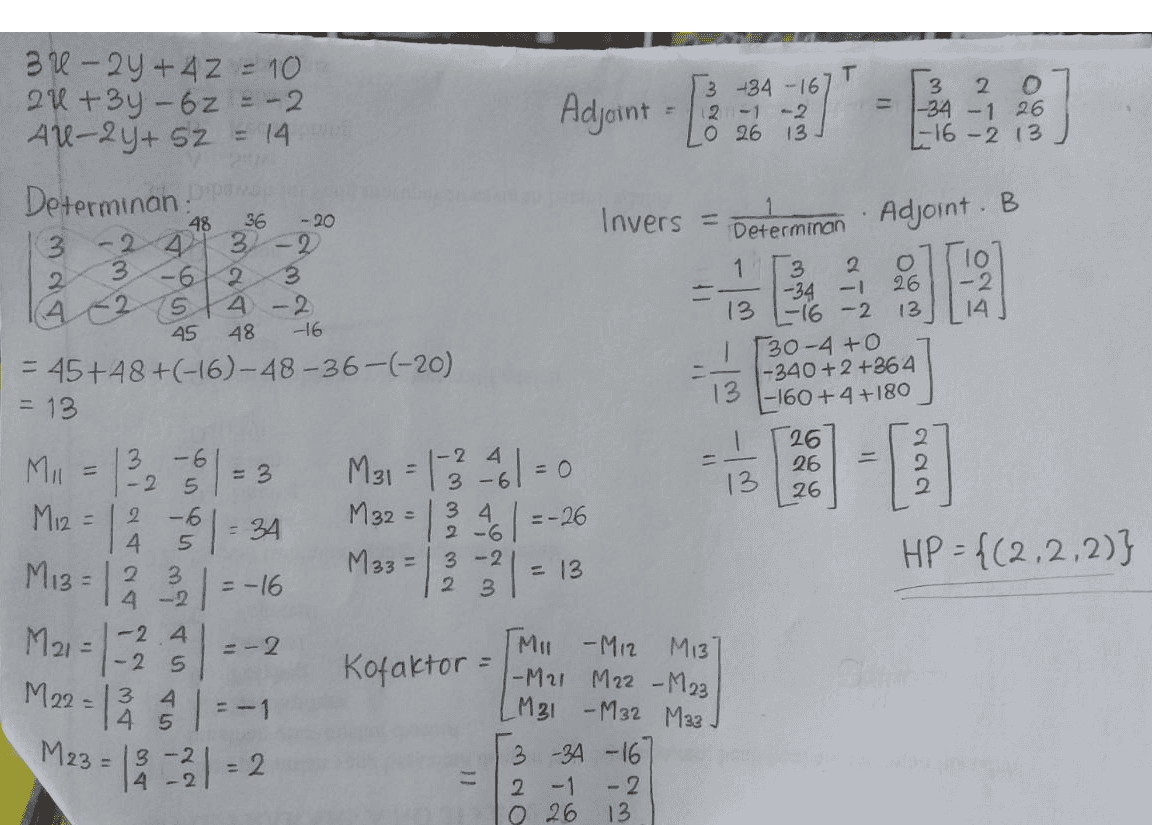 3x - 2y + 4z = 10
2x + 3y - 6z = -2
4x - 2y + 5z = 14
Determinan:
48 36 -20
| 3 -2 4 | 3 -2
| 2 3 -6 | 2 3
| 4 -2 5 | 4 -2
45 48 -16
= 45 + 48 + (-16) - 48 - 36 - (-20)
= 13
M11 = |3 -6| = 3
|-2 5|
M12 = |2 -6| = 34
|4 5|
M13 = |2 3| = -16
|4 -2|
M21 = |-2 4| = -2
|-2 5|
M22 = |3 4| = -1
|4 5|
M23 = |3 -2| = 2
|4 -2|
M31 = |-2 4| = 0
|3 -6|
M32 = |3 4| = -26
|2 -6|
M33 = |3 -2| = 13
|2 3|
Kofaktor = [M11 -M12 M13]
[-M21 M22 -M23]
[M31 -M32 M33]
= [3 -34 -16]
[2 -1 -2]
[0 26 13]
Adjoint = [3 -34 -16]T = [3 2 0]
[2 -1 -2] [-34 -1 26]
[0 26 13] [-16 -2 13]
Invers = 1/Determinan . Adjoint . B
= 1/13 [3 2 0] [10]
[-34 -1 26] [-2]
[-16 -2 13] [14]
= 1/13 [30 - 4 + 0]
[-340 + 2 + 364]
[-160 + 4 + 180]
= 1/13 [26] = [2]
[26] [2]
[26] [2]
HP = {(2,2,2)}